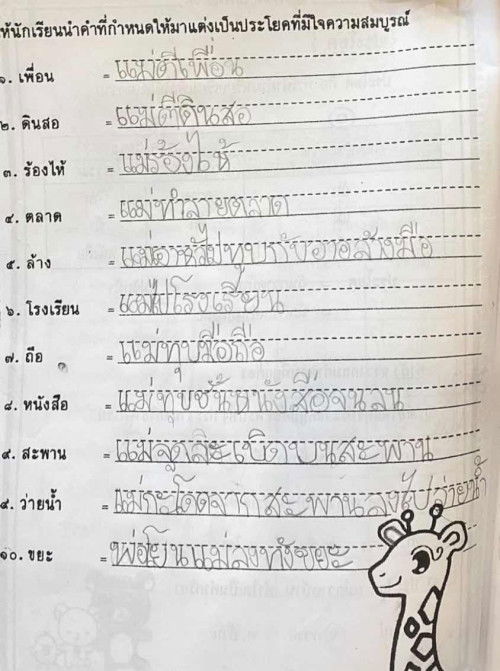 ห้นักเรียนนำคำที่กำหนดให้มาแต่งเป็นประโยคที่มีใจความสมบูรณ์
๑. เพื่อน = แม่ตีเพื่อน
๒. ดินสอ = แม่ตีดินสอ
๓. ร้องไห้ = แม่ร้องไห้
๔. ตลาด = แม่ทำลายตลาด
๕. ล้าง = แม่เอาหัวไปทุบกับอ่างล้างมือ
๖. โรงเรียน = แม่ไปโรงเรียน
๗. ถือ = แม่ทุบมือถือ
๘. หนังสือ = แม่ทุบชั้นหนังสือจนล้น
๙. สะพาน = แม่จุดระเบิดบนสะพาน
๙. ว่ายน้ำ = แม่กระโดดจากสะพานลงไปว่ายน้ำ
๑๐. ขยะ = พ่อโยนแม่ลงถังขยะ